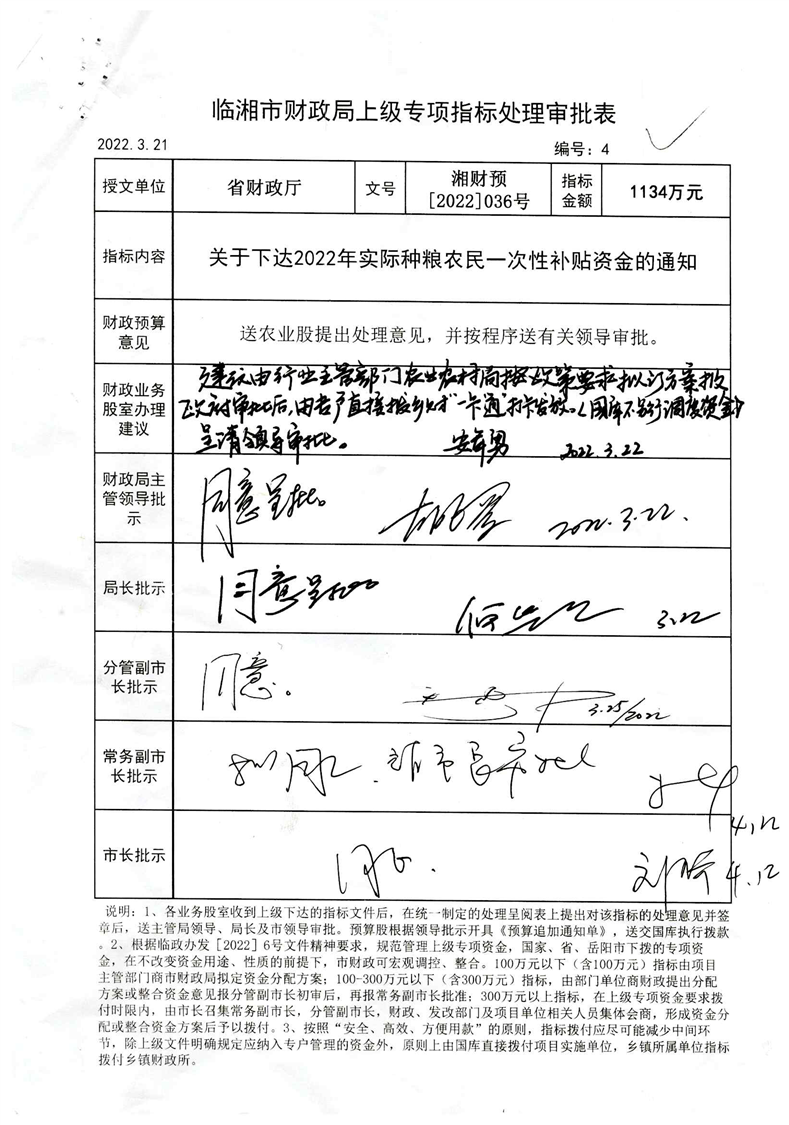 临湘市财政局上级专项指标处理审批表
2022.3.21
编号：4
授文单位 省财政厅 文号 湘财预[2022]036号 指标金额 1134万元
指标内容 关于下达2022年实际种粮农民一次性补贴资金的通知
财政预算意见 送农业股提出处理意见，并按程序送有关领导审批。
财政业务股室办理建议
建议由行业主管部门农业农村局按政策要求拟订方案报
呈请领导审批。 2022.3.22
财政局主管领导批示 同意呈批。 2022.3.22.
局长批示 同意呈批 3.22
分管副市长批示 同意。 3.25/2022
常务副市长批示 4.12
市长批示 同意. 4.12
说明：1、各业务股室收到上级下达的指标文件后，在统一制定的处理呈阅表上提出对该指标的处理意见并签
章后，送主管局领导、局长及市领导审批。预算股根据领导批示开具《预算追加通知单》，送交国库执行拨款
。2、根据临政办发［2022］6号文件精神要求，规范管理上级专项资金，国家、省、岳阳市下拨的专项资
金，在不改变资金用途、性质的前提下，市财政可宏观调控、整合。100万元以下（含100万元）指标由项目
主管部门商市财政局拟定资金分配方案；100-300万元以下（含300万元）指标，由部门单位商财政提出分配
方案或整合资金意见报分管副市长初审后，再报常务副市长批准；300万元以上指标，在上级专项资金要求拨
付时限内，由市长召集常务副市长，分管副市长，财政、发改部门及项目单位相关人员集体会商，形成资金分
配或整合资金方案后予以拨付。3、按照“安全、高效、方便用款”的原则，指标拨付应尽可能减少中间环
节，除上级文件明确规定应纳入专户管理的资金外，原则上由国库直接拨付项目实施单位，乡镇所属单位指标
拨付乡镇财政所。